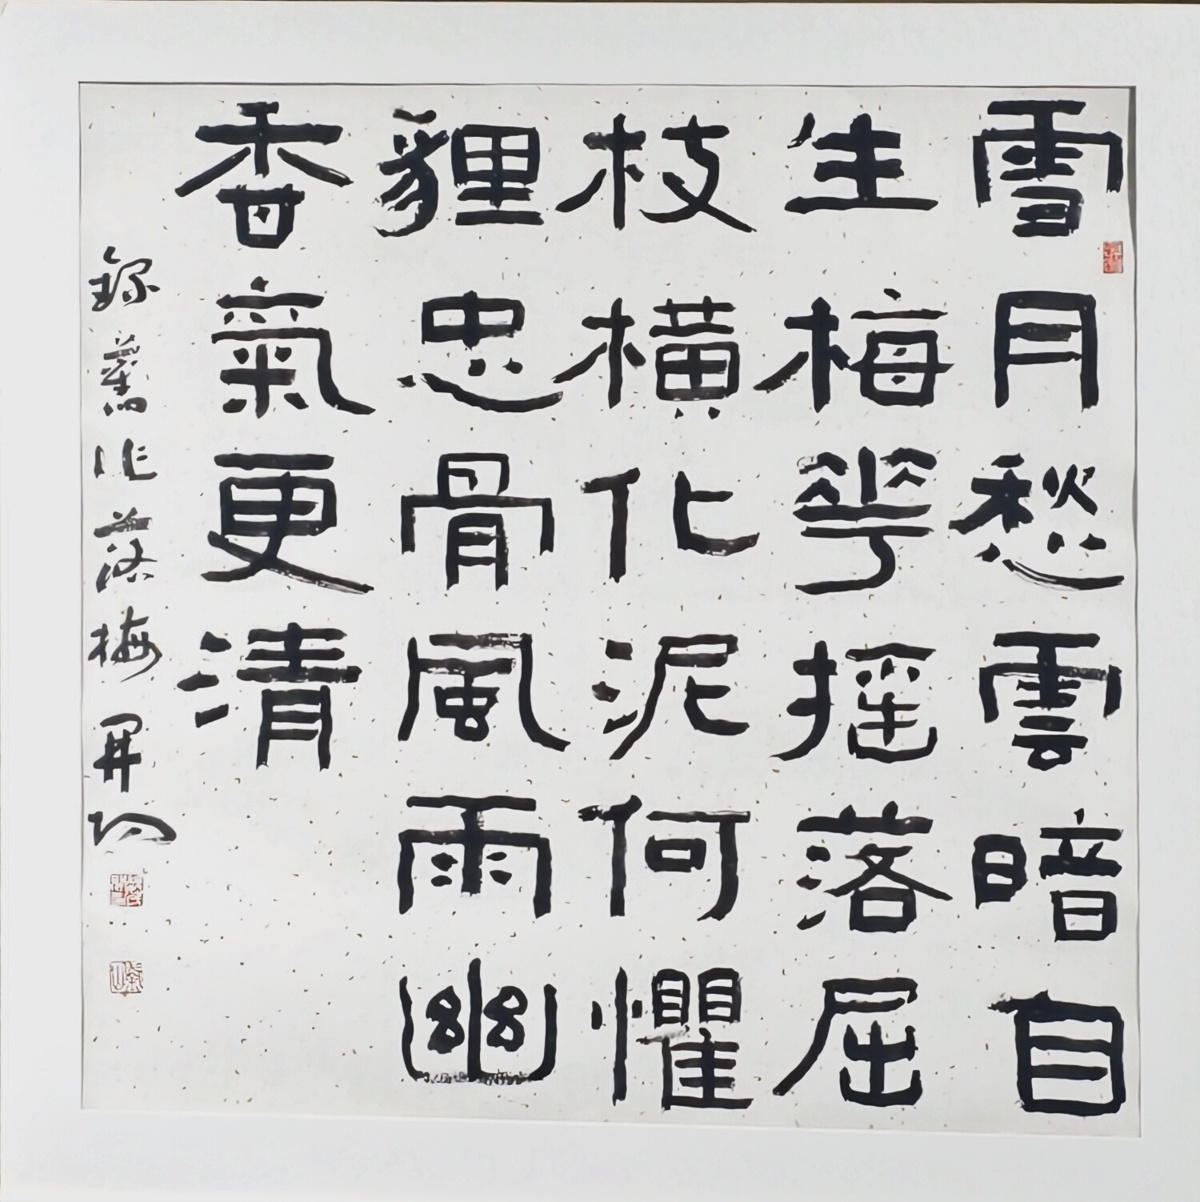 雪月愁雲暗自
生梅華搖落屈
枝橫化泥何懼
貍忠骨風雨幽
香氣更清
錄舊作落梅 開